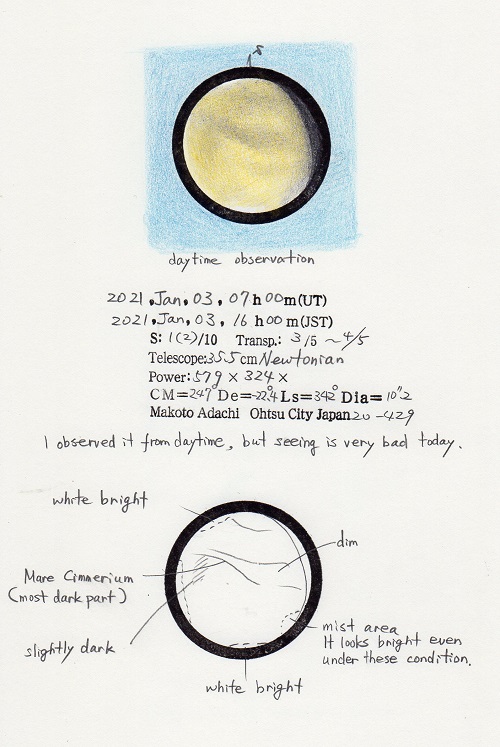 S
daytime observation
2021, Jan, 03, 07h00m(UT)
2021, Jan, 03, 16h00m(JST)
S: 1(2)/10 Transp.: 3/5 ~ 4/5
Telescope:355cm Newtonian
Power:579× 324×
CM=247° De=-22.4° Ls=342° Dia=10".2
Makoto Adachi Ohtsu City Japan 20-429
I observed it from daytime, but seeing is very bad today.
white bright
dim
Mare Cimmerium
(most dark part)
slightly dark
mist area
It looks bright even
under these condition.
white bright